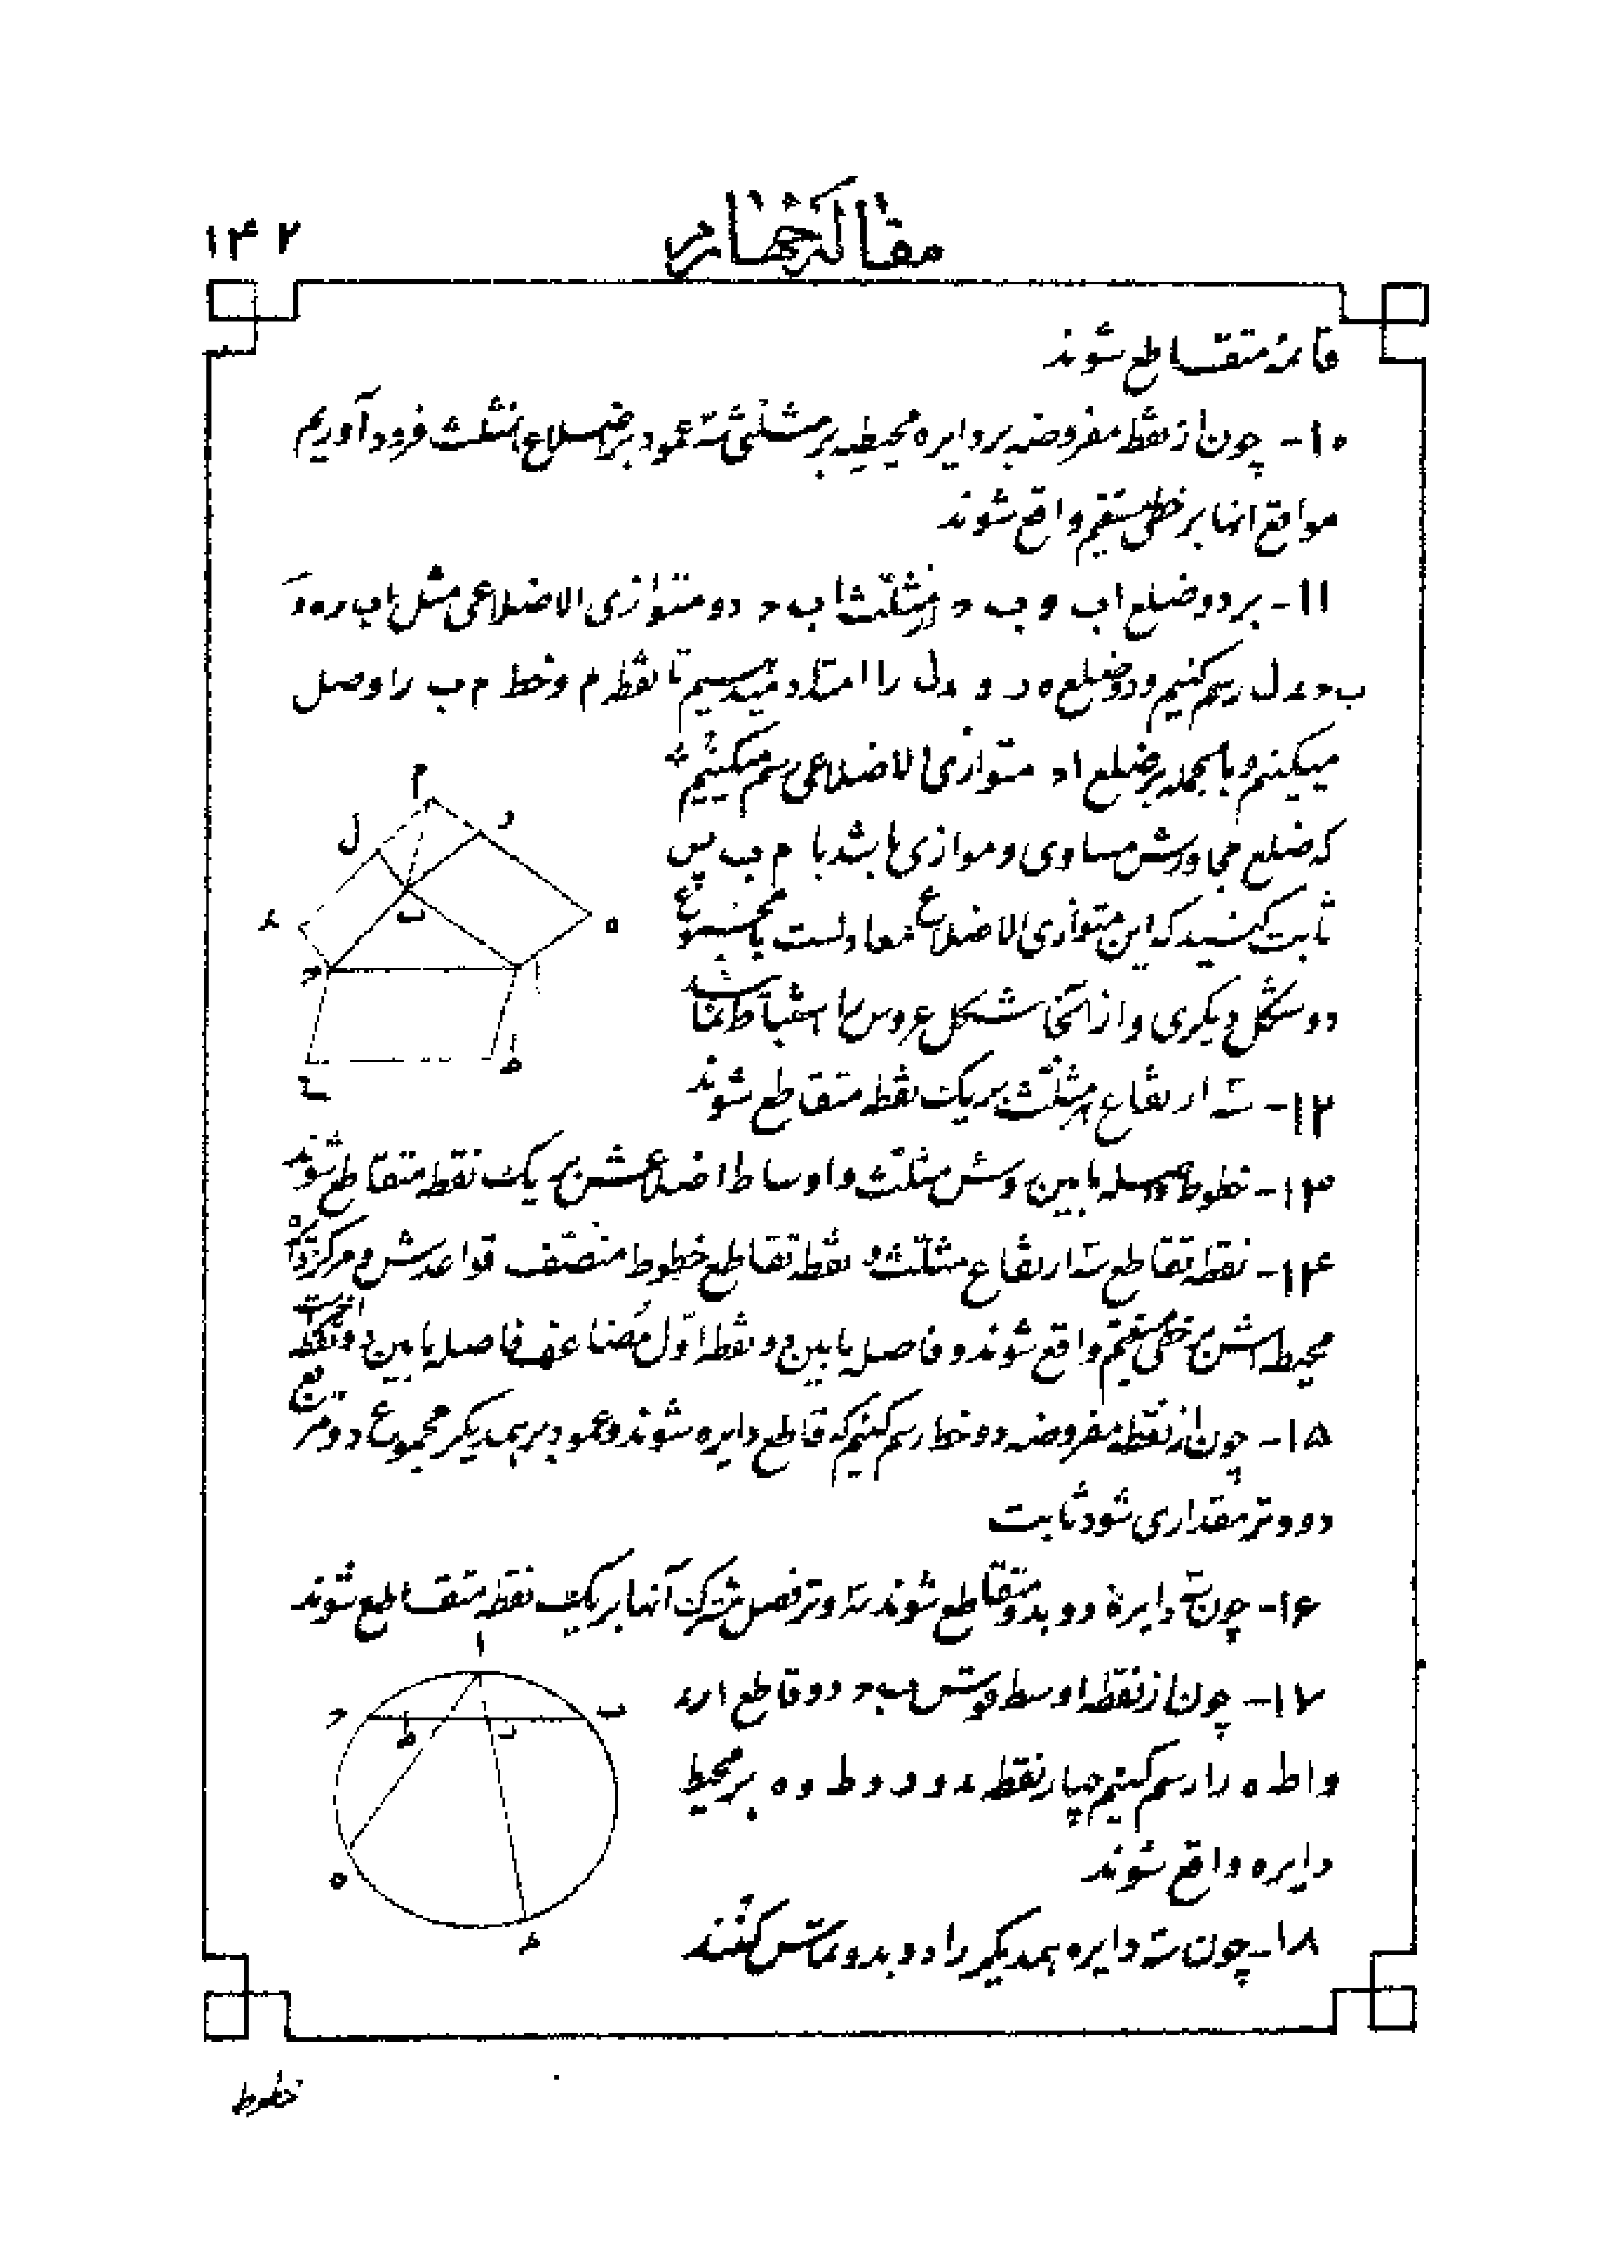 مقاله چهارم
۱۴۲
قائمه متقاطع شوند
۱۰- چون از نقطه مفروضه بر دایره محیطه بر مثلثی سه عمود بر اضلاع مثلث فرود آوریم
مواقع انها بر خطی مستقیم واقع شوند
۱۱- بر دو ضلع اب و ب ح از مثلث اب ح دو متوازی الاضلاعی مثل اب ر ه و
ب ح ء ل رسم کنیم و دو ضلع ه ر و ء ل را امتداد میدهیم تا نقطه م و خط م ب را وصل
میکنیم و بالجمله بر ضلع اح متوازی الاضلاعی رسم میکنیم
که ضلع مجاورش مساوی و موازی باشد با م ب پس
ثابت کنید که این متوازی الاضلاع معادلست با مجموع
دو شکل دیگری و از آنجا شکل عروس را استنباط نمائید
۱۲- سه ارتفاع هر مثلث بر یک نقطه متقاطع شوند
۱۳- خطوط واصله مابین رؤس مثلث و اوساط اضلاعش بر یک نقطه متقاطع شوند
۱۴- نقطه تقاطع سه ارتفاع مثلث و نقطه تقاطع خطوط منصّف قواعدش و مرکز دایره
محیطه اش بر خطی مستقیم واقع شوند و فاصله مابین دو نقطه اوّل مضاعف فاصله مابین دو نقطه اخیر است
۱۵- چون از نقطه مفروضه دو خط رسم کنیم که قاطع دایره شوند و عمود بر همدیگر مجموع دو مربع
دو وتر مقداری شود ثابت
۱۶- چون سه دایره دو بدو متقاطع شوند سه وتر فصل مشترک آنها بر یک نقطه متقاطع شوند
۱۷- چون از نقطه اوسط قوس ب ح دو قاطع ا ر ء
و ا ط ه را رسم کنیم چهار نقطه ء و ر و ط و ه بر محیط
دایره واقع شوند
۱۸- چون سه دایره همدیگر را دو بدو تماس کنند
خطوط
م
ر
ل
ب
ء
ه
ح
ا
ط
ا
ح
ب
ط
ر
ه
ء